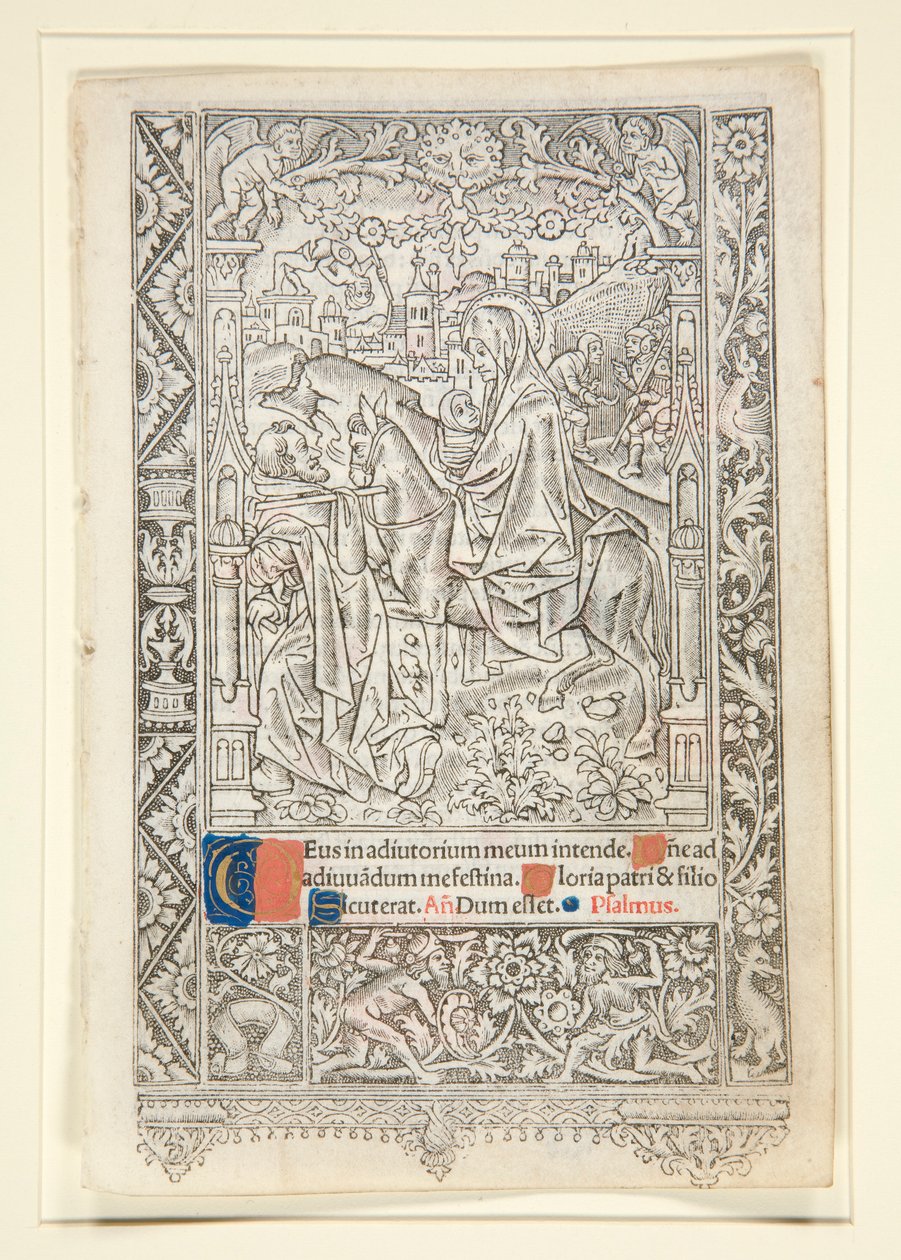 DEus in adiutorium meum intende. Dñe ad
adiuuãdum me festina. Gloria patri & filio
Sicut erat. Añ. Dum esset. Psalmus.